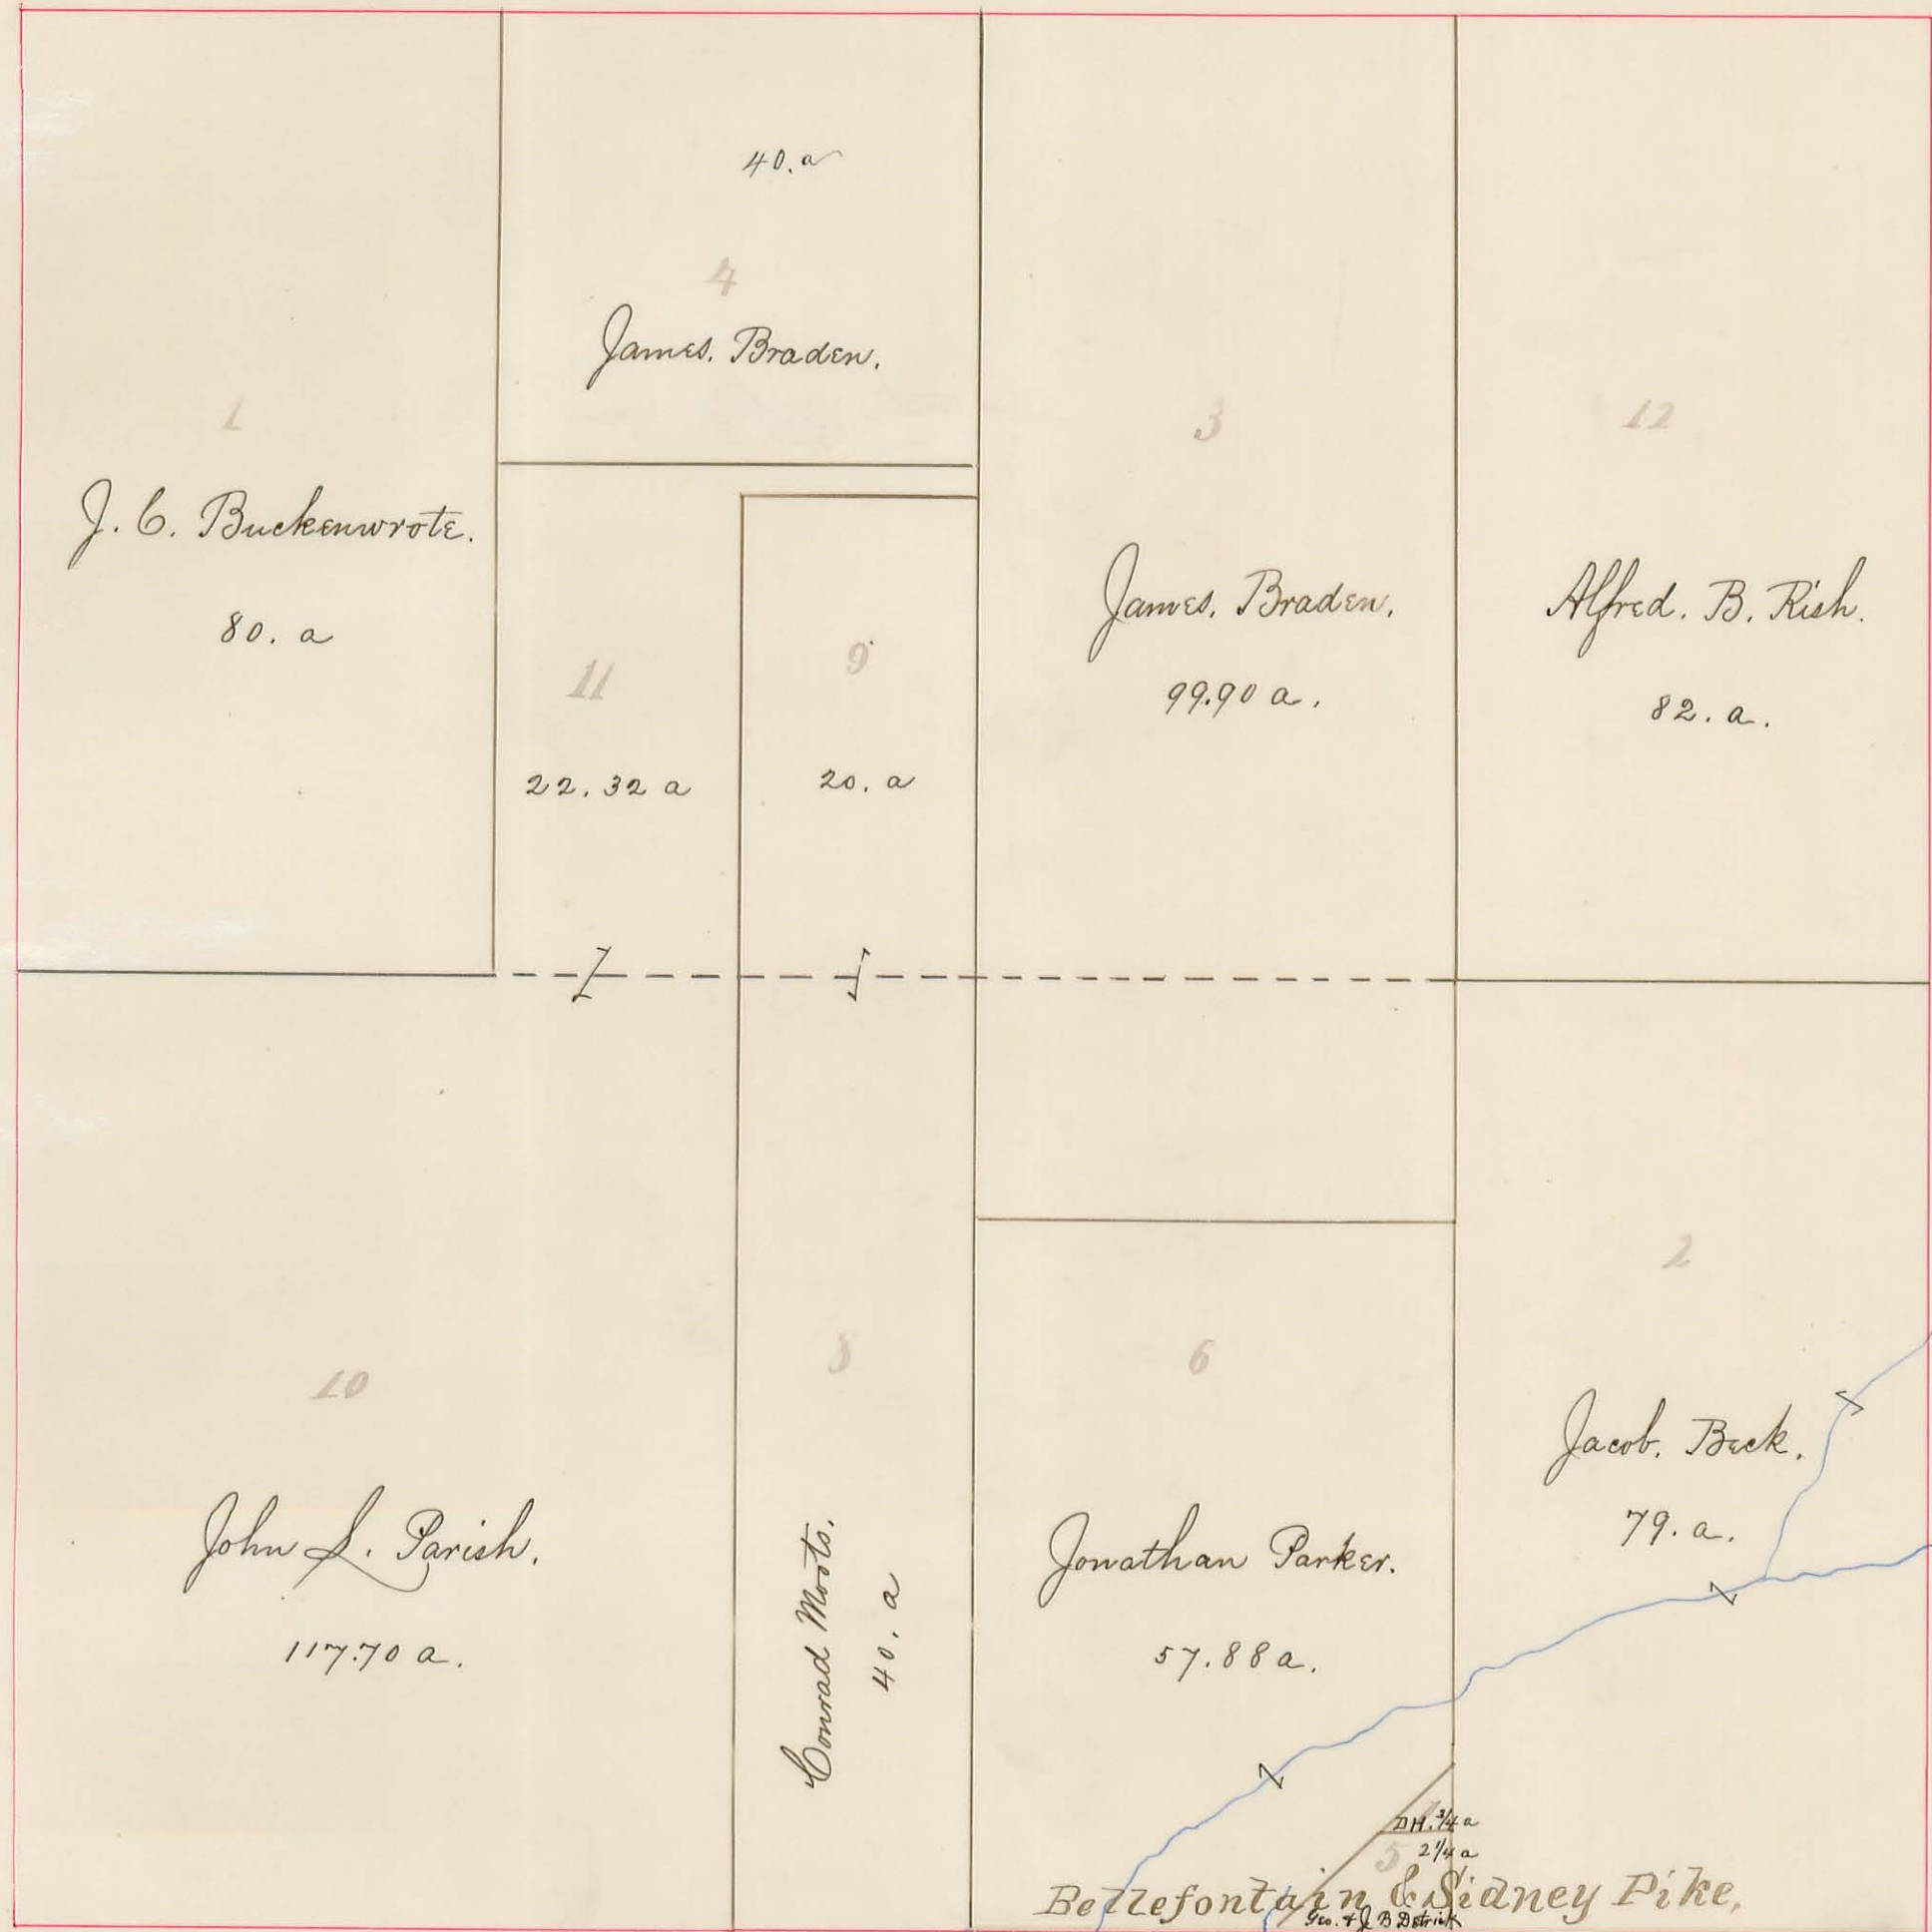 1
J. C. Buckenwrote.
80. a
40. a
4
James. Braden.
11
22.32 a
9
20. a
3
James. Braden.
99.90 a.
12
Alfred. B. Rish.
82. a.
10
John L. Parish.
117.70 a.
8
Conrad Moots.
40. a
6
Jonathan Parker.
57.88 a.
2
Jacob. Beck.
79. a.
D H. 3/4 a
5 2 1/4 a
Bellefontain & Sidney Pike,
Geo. & J B Detrick